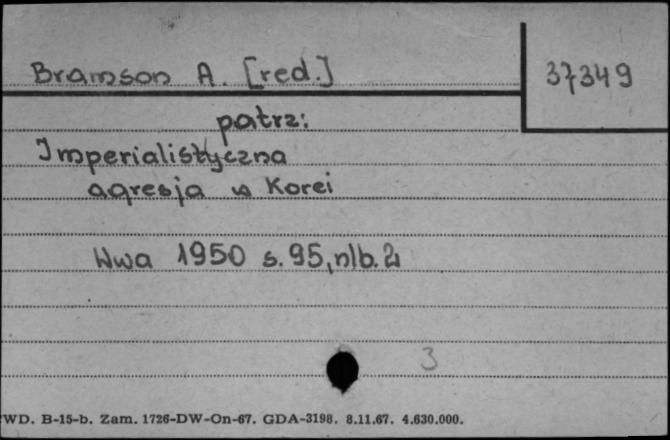 Bramson A. [red.]
37349
patrz:
Imperialistyczna
agresja w Korei
Wwa 1950 s.95,nlb.2
3
WD. B-15-b. Zam. 1726-DW-On-67. GDA-3198. 8.11.67. 4.630.000.